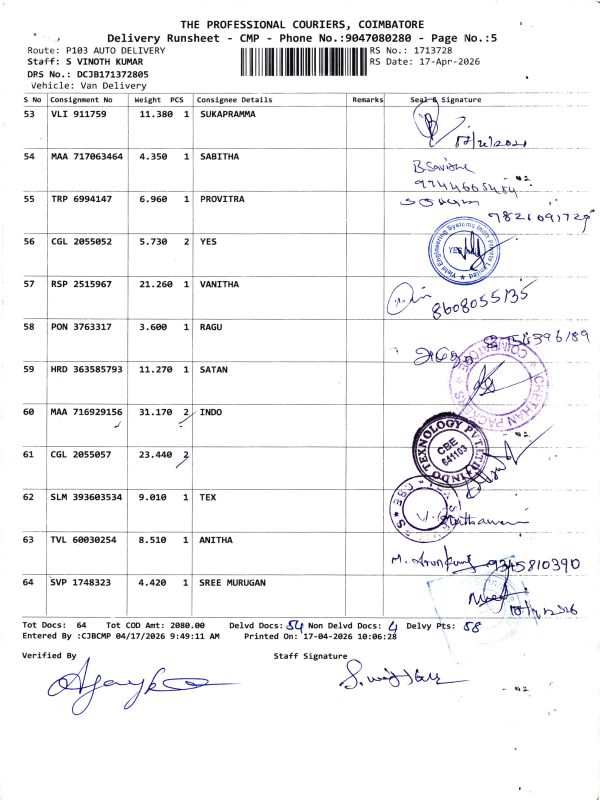 THE PROFESSIONAL COURIERS, COIMBATORE
Delivery Runsheet - CMP - Phone No.:9047080280 - Page No.:5
Route: P103 AUTO DELIVERY RS No.: 1713728
Staff: S VINOTH KUMAR RS Date: 17-Apr-2026
DRS No.: DCJB171372805
Vehicle: Van Delivery
S No Consignment No Weight PCS Consignee Details Remarks Seal & Signature
53 VLI 911759 11.380 1 SUKAPRAMMA
54 MAA 717063464 4.350 1 SABITHA
55 TRP 6994147 6.960 1 PROVITRA
56 CGL 2055052 5.730 2 YES
Yield Engineering Systems India Private Limited
57 RSP 2515967 21.260 1 VANITHA
8608055135
58 PON 3763317 3.600 1 RAGU
59 HRD 363585793 11.270 1 SATAN
CHETHAN PACKERS * COIMBATORE *
60 MAA 716929156 31.170 2 INDO
61 CGL 2055057 23.440 2
INDO TEXNOLOGY PVT.LTD
CBE
641103
62 SLM 393603534 9.010 1 TEX
63 TVL 60030254 8.510 1 ANITHA
9345810390
64 SVP 1748323 4.420 1 SREE MURUGAN
Tot Docs: 64 Tot COD Amt: 2080.00 Delvd Docs: 54 Non Delvd Docs: 4 Delvy Pts: 58
Entered By :CJBCMP 04/17/2026 9:49:11 AM Printed On: 17-04-2026 10:06:28
Verified By Staff Signature